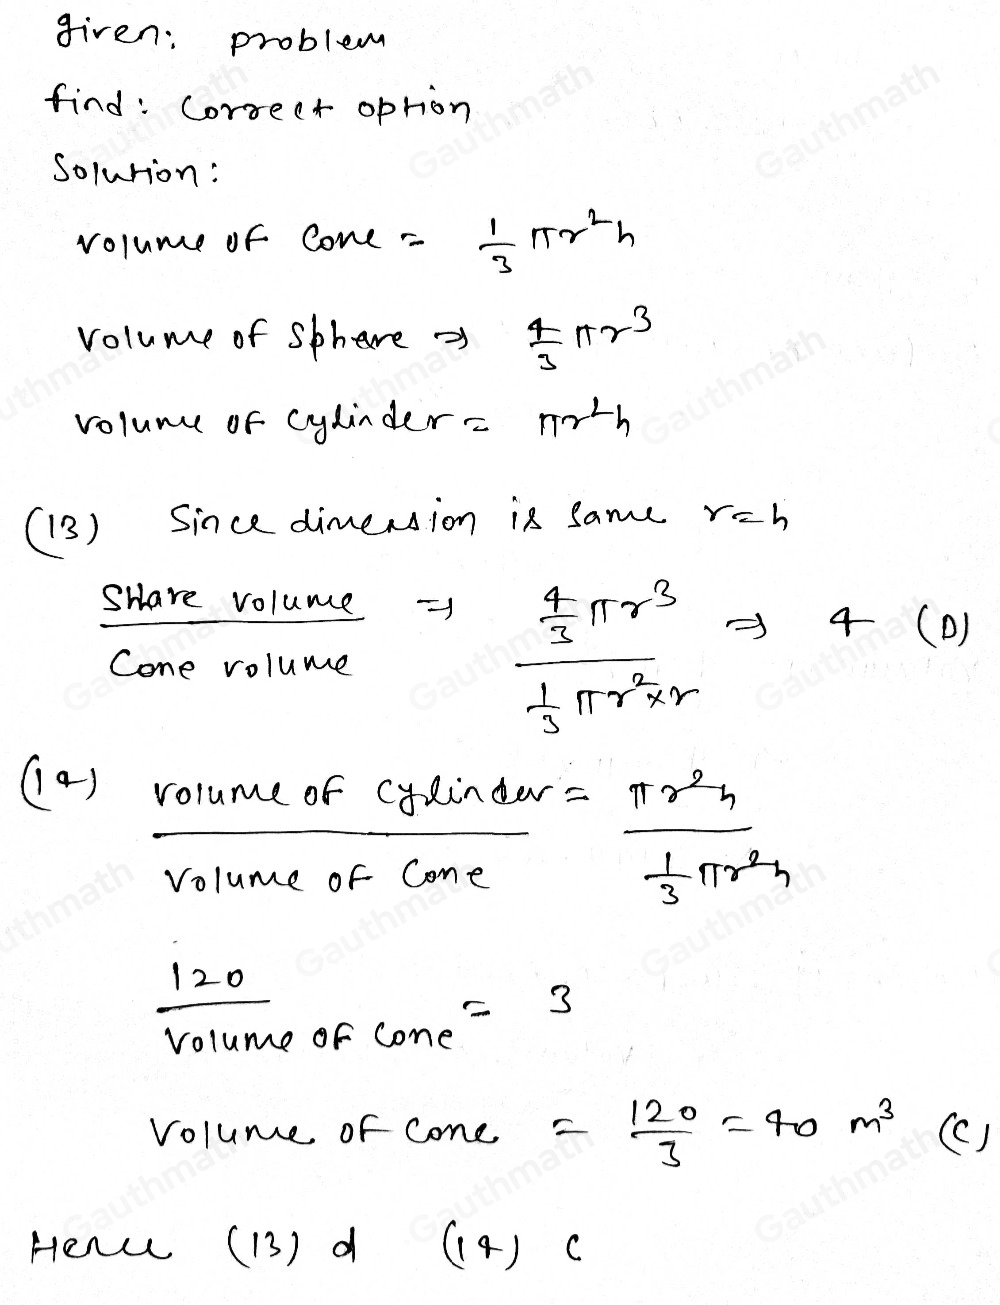 given: problem
find: Correct option
Solution:
volume of Cone = 1/3 πr²h
Volume of Sphere ⇒ 4/3 πr³
volume of cylinder = πr²h
(13) Since dimension is same r=h
SHare volume / Cone volume ⇒ 4/3 πr³ / 1/3 πr²×r ⇒ 4 (D)
(14) volume of cylinder / Volume of Cone = πr²h / 1/3 πr²h
120 / Volume of Cone = 3
Volume of Cone = 120/3 = 40 m³ (C)
Hence (13) d (14) c
Gauthmath